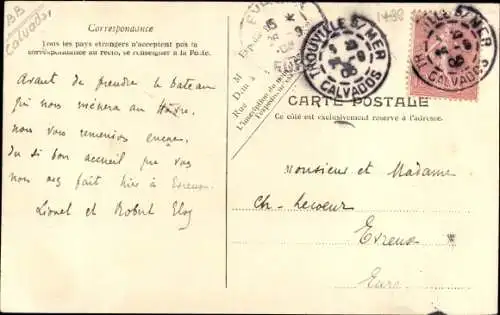 BB
Calvados
Correspondance
Tous les pays étrangers n'acceptent pas la
correspondance au recto, se renseigner à la Poste.
Avant de prendre le bateau
qui nous mènera au Hâvre
nous vous remercions encore
du si bon accueil que vous
nous avez fait hier à Evreux
Lionel et Robert Eloy
TROUVILLE S/ MER
CALVADOS
TROUVILLE S/ MER
CALVADOS
M
Rue
CARTE POSTALE
Ce côté est exclusivement réservé à l'adresse.
Monsieur et Madame
Ch. Lecoeur
Evreux
Eure